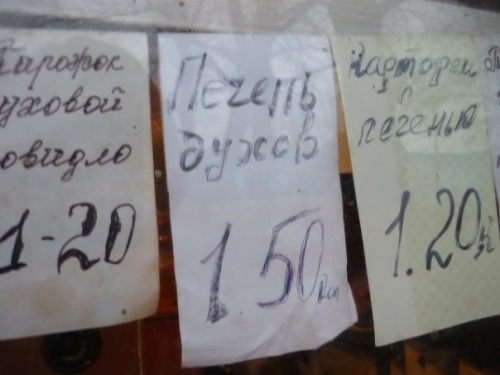 Пирожок
уховой
овидло
1-20
Печень
духов
1.50
Картофел
с
печенью
1.20